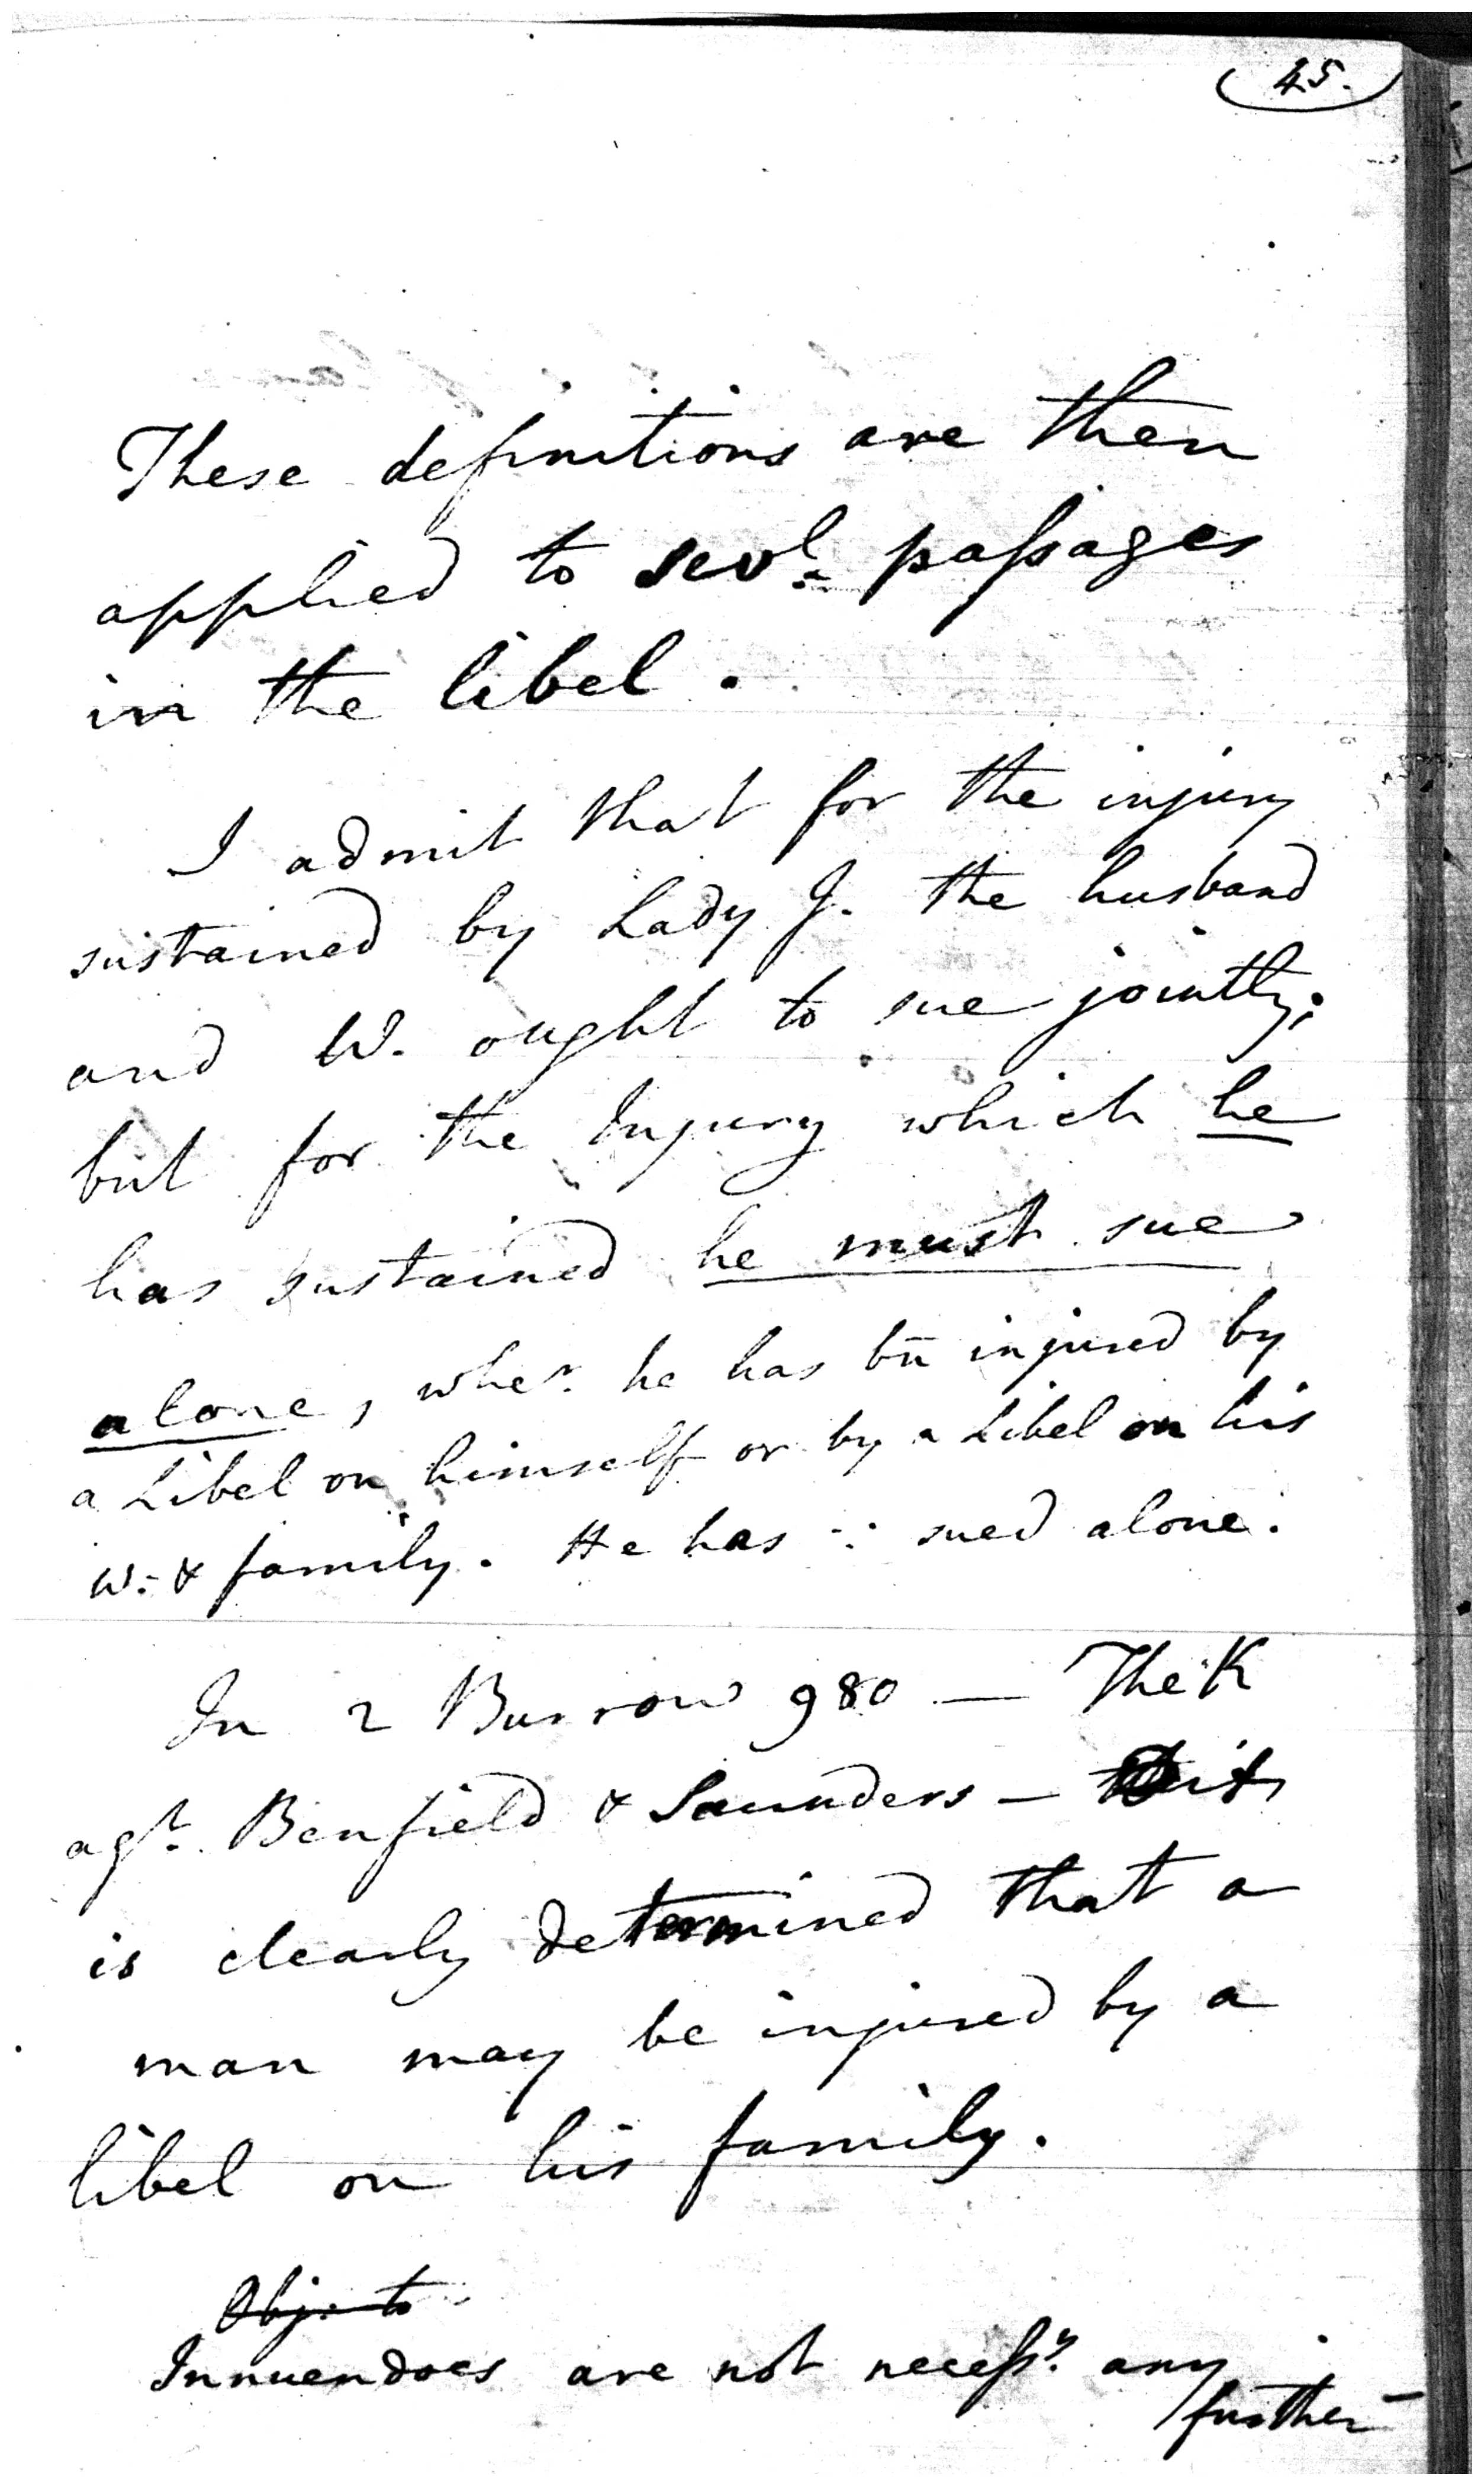 45.
These definitions are then
applied to sevl. passages
in the libel.
I admit that for the injury
sustained by Lady J. the husband
and W. ought to sue jointly;
but for the Injury which he
has sustained he must sue
alone, wher. he has bn̄ injured by
a Libel on himself or by a Libel on his
W. & family. He has ∴ sued alone.
In 2 Burrow 980 — The K
agt. Benfield & Saunders — it
is clearly determined that a
man may be injured by a
libel on his family.
Obj. to
Innuendoes are not necessy. any
further